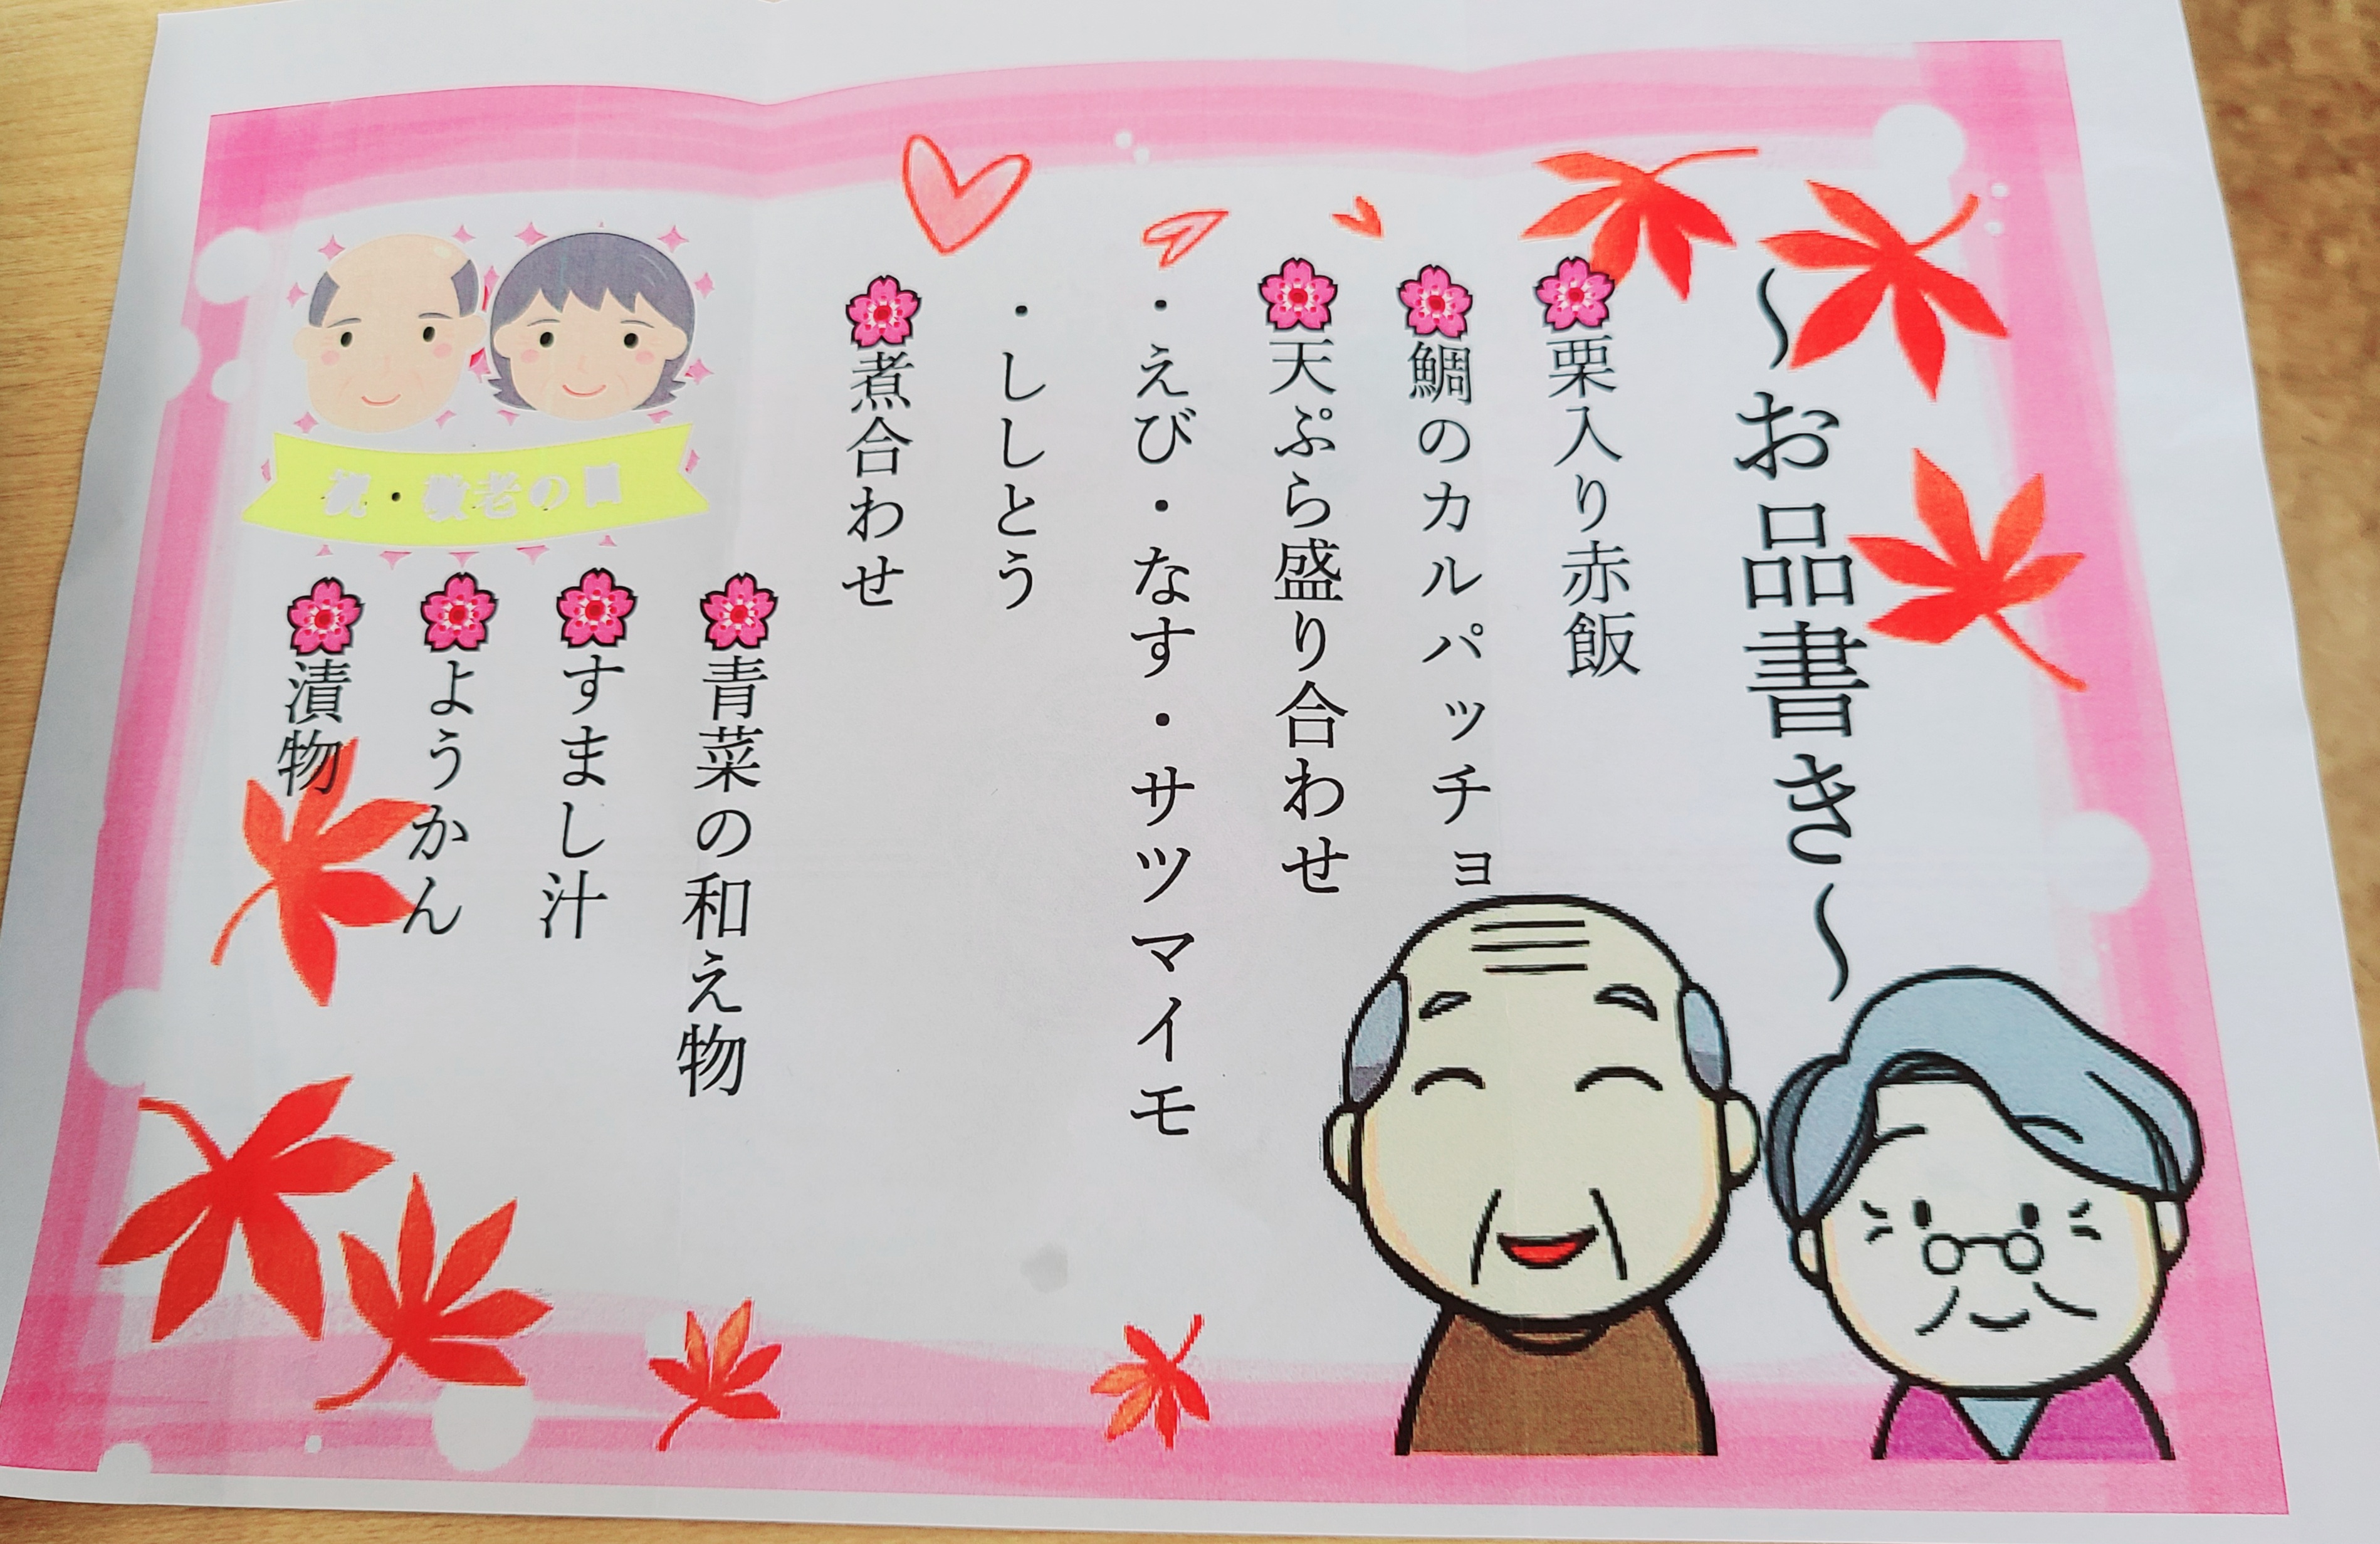 ～お品書き～
栗入り赤飯
鯛のカルパッチョ
天ぷら盛り合わせ
・えび・なす・サツマイモ
・ししとう
煮合わせ
祝・敬老の日
青菜の和え物
すまし汁
ようかん
漬物